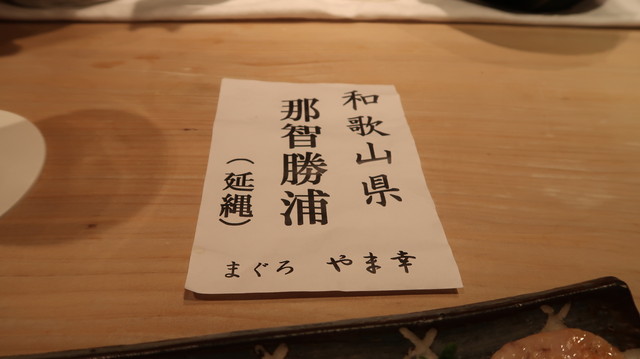 和歌山県
那智勝浦
（延縄）
まぐろ やま幸